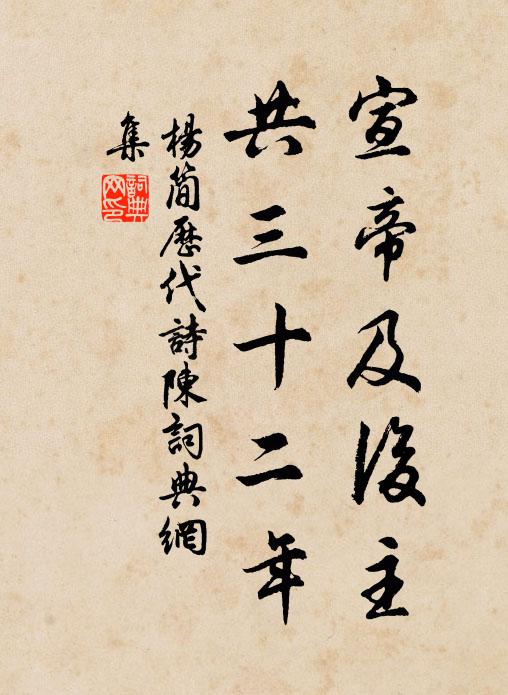 宣帝及後主
共三十二年
楊簡歷代詩陳詞典網
集
詞典
网印